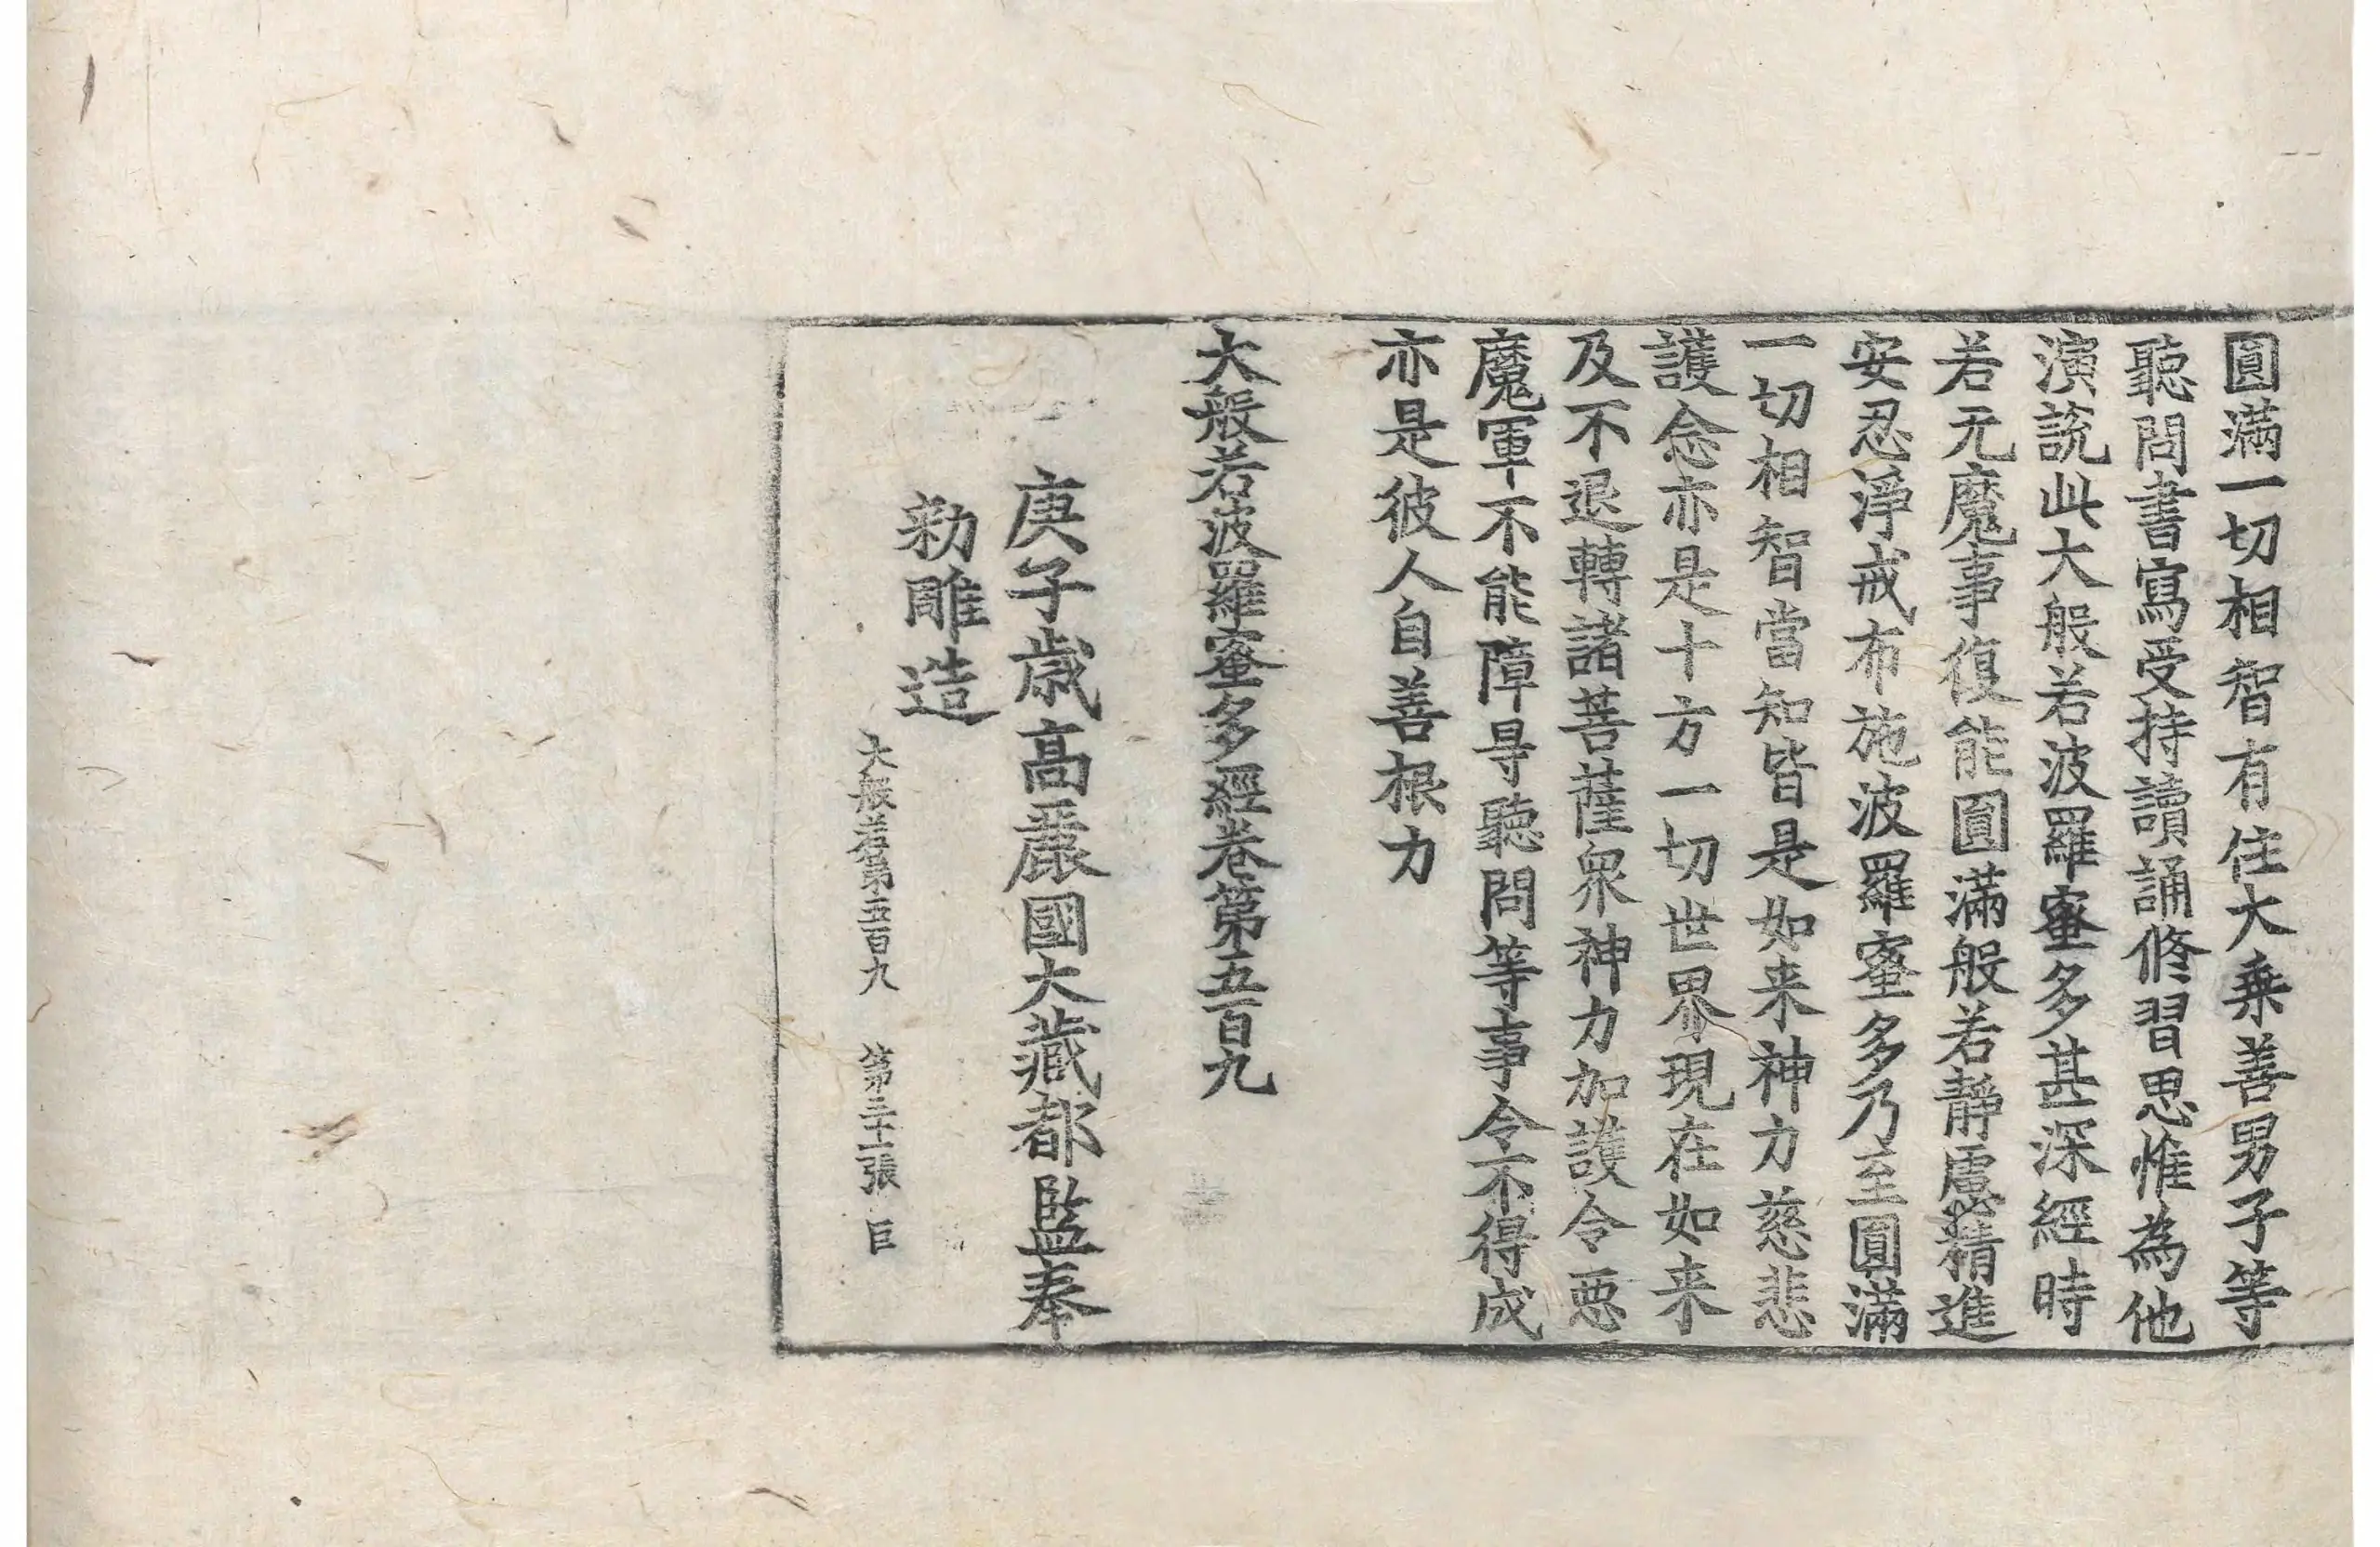 圓滿一切相智有住大乗善男子等
聽問書寫受持讀誦修習思惟為他
演說此大般若波羅蜜多甚深經時
若无魔事復能圓滿般若靜慮精進
安忍淨戒布施波羅蜜多乃至圓滿
一切相智當知皆是如来神力慈悲
護念亦是十方一切世界現在如来
及不退轉諸菩薩衆神力加護令惡
魔軍不能障㝵聽問等事令不得成
亦是彼人自善根力
大般若波羅蜜多經卷第五百九
庚子歲高麗國大藏都監奉
勑雕造
大般若第五百九 第二十一張 巨